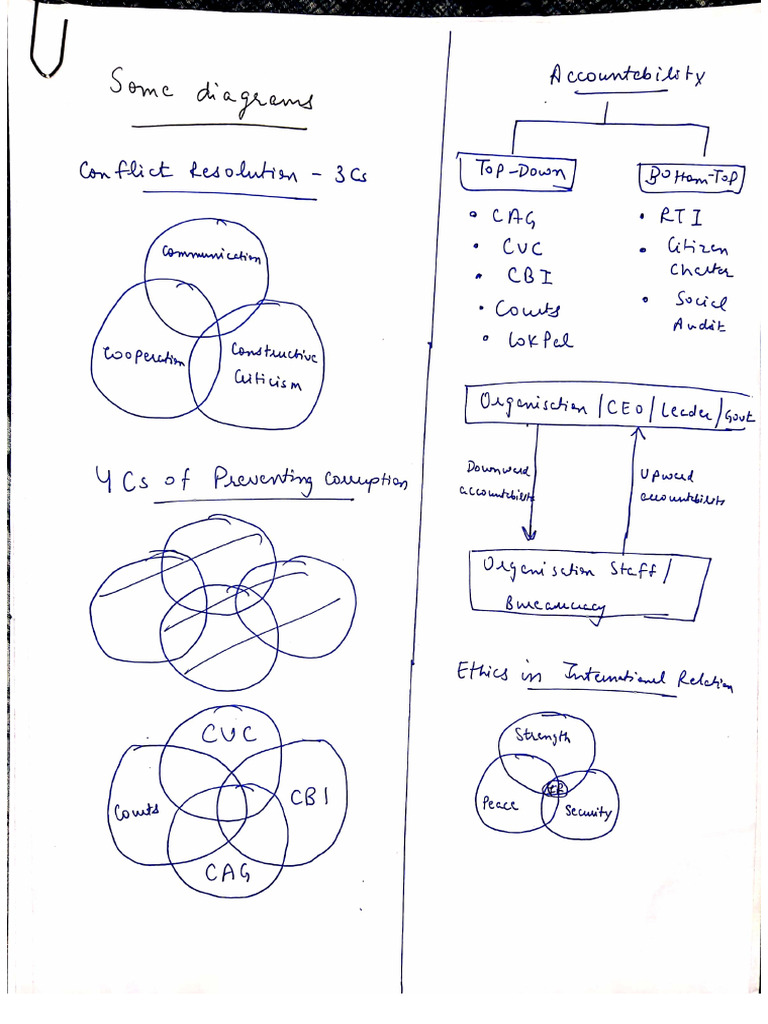 Some diagrams
Conflict Resolution - 3Cs
Communication
Cooperation
Constructive
Criticism
4 Cs of Preventing Corruption
CVC
Courts
CBI
CAG
Accountability
Top-Down
• CAG
• CVC
• CBI
• Courts
• Lokpal
Bottom-Top
• RTI
• Citizen
Charter
• Social
Audit
Organisation / CEO / Leader / Govt
Downward
accountability
Upward
accountability
Organisation Staff /
Bureaucracy
Ethics in International Relation
Strength
Peace
Security